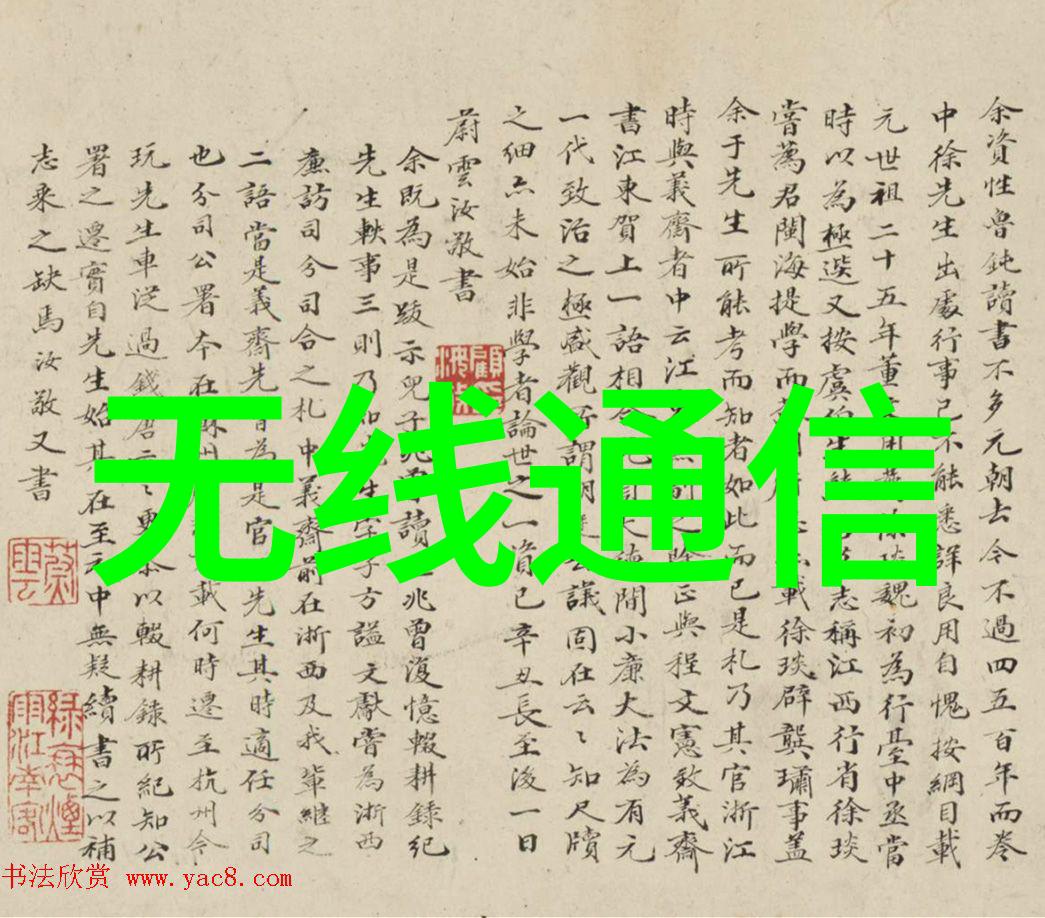 余資性魯鈍讀書不多元朝去今不過四五百年而卷
中徐先生出處行事已不能悉詳良用自愧按綱目載
元世祖二十五年董用琰魏初為行臺中丞當
時以為極選又按虞伯生志稱江西行省徐琰
嘗薦君閩海提學而載徐琰辟龔璛事蓋
余于先生所能考而知者如此而已是札乃其官浙江
時與義齋者中云江除正與程文憲效義齋
書江東賀上一語相合間小廉大法為有元
一代致治之極盛觀所謂議固在云〻知尺牘
之細亦未始非學者論世之一資已辛丑長至後一日
蔚雲汝敬書
余既為是跋示兒子兆讀之兆曾復憶輟耕錄紀
先生軼事三則乃知先生字子方謚文獻嘗為浙西
廉訪司分司合之札中義齋前在浙西及我輩繼之
二語當是義齋先曾為是官先生其時適任分司
也分司公署本在蘇州載何時遷至杭州今
玩先生車從過錢唐云〻更恭以輟耕錄所紀知公
署之遷實自先生始其在至元中無疑續書之以補
志乘之缺馬汝敬又書
无线通信
书法欣赏 www.yac8.com